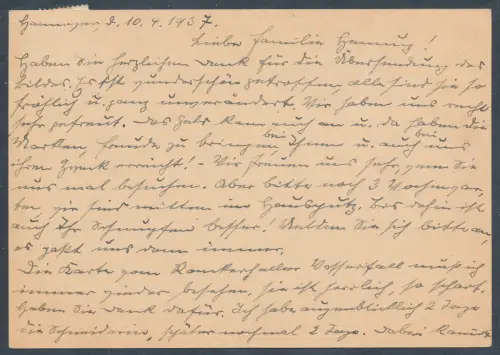 Hannover, d. 10.4.1937.
Liebe Familie Hennig!
Haben Sie herzlichen Dank für die Übersendung des
Bildes. Es ist wunderschön getroffen, alle sind sie so
fröhlich u. ganz unverändert. Wir haben uns recht
sehr gefreut. Das Geld kam auch an u. da haben die
Marken, Freude zu bringen, bei Ihnen u. bei auch uns
ihren Zweck erreicht! - Wir freuen uns sehr, wenn Sie
uns mal besuchen. Aber bitte noch 3 Wochen war-
ten, wir sind mitten im Hausputz. Bis dahin ist
auch Ihr Schnupfen besser! Melden Sie sich bitte an,
es paßt uns dann immer.
Die Karte vom Romkerhaller Wasserfall muß ich
immer wieder besehen, sie ist herrlich, so scharf.
Haben Sie Dank dafür. Ich habe augenblicklich 2 Tage
die Schneiderin, später nochmal 2 Tage. Dabei kann